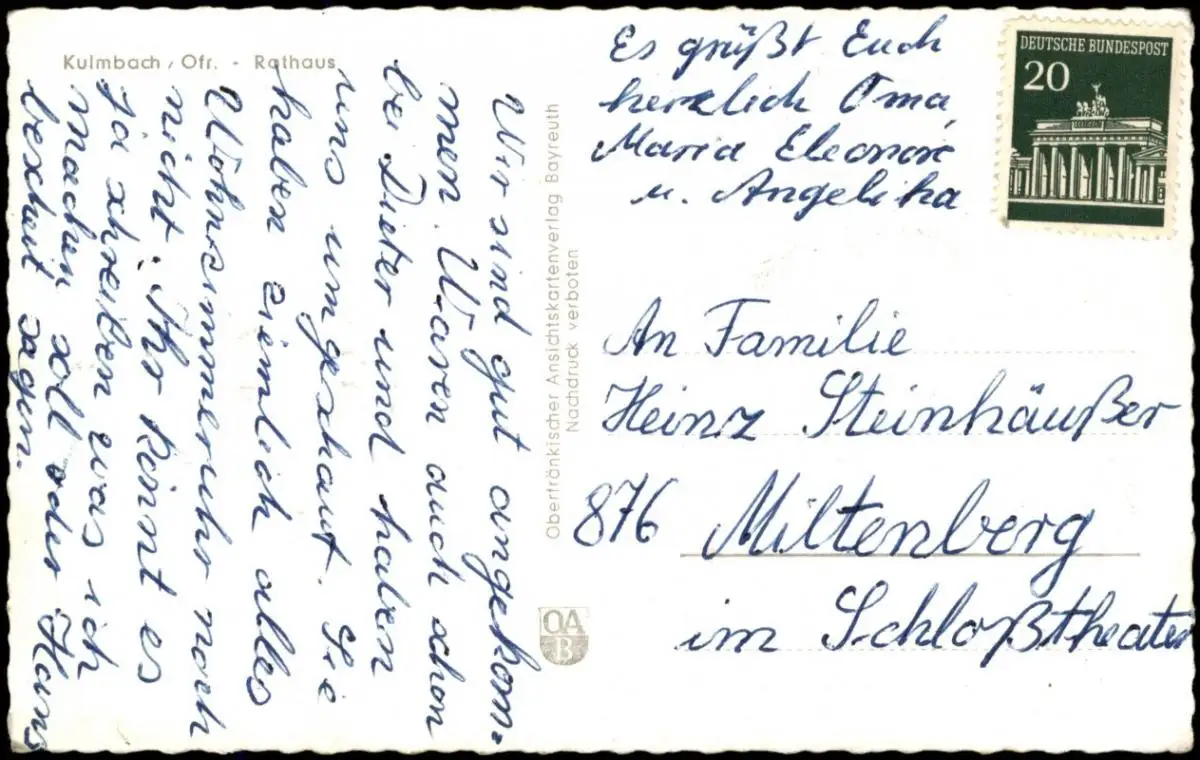 Kulmbach / Ofr. - Rathaus
Wir sind gut angekom-
men. Waren auch schon
bei Dieter und haben
uns umgeschaut. Sie
haben ziemlich alles
Wohnzimmeruhr noch
nicht. Ihr könnt es
Ja schreiben was ich
machen soll oder Hans
bescheit sagen.
Oberfränkischer Ansichtskartenverlag Bayreuth
Nachdruck verboten
OA
B
Es grüßt Euch
herzlich Oma,
Maria Eleonore
u. Angelika
DEUTSCHE BUNDESPOST
20
An Familie
Heinz Steinhäußer
876 Miltenberg
im Schloßtheater